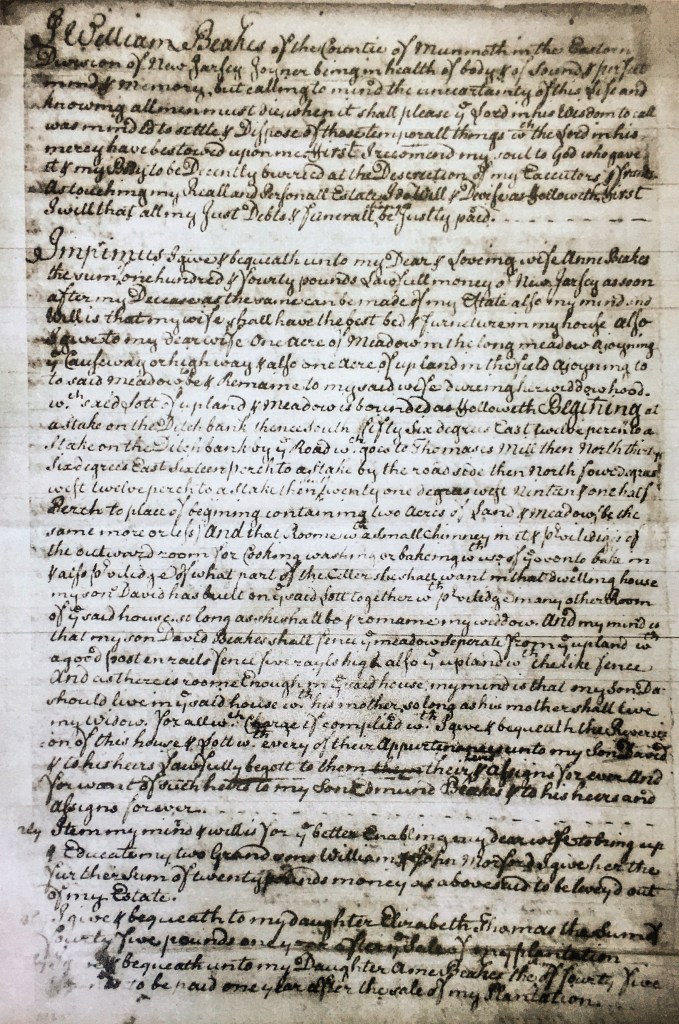 I William Beakes of the Countie of Munmoth in the Eastern
Division of New Jarsey Joyner being in health of body & of Sound & perfect
mind & Memory, but calling to mind the uncertainty of this Life and
knowing all men must die, when it shall please ye Lord in his Wisdom to call
was minded to settle & Dispose of those temporall things wth the Lord in his
mercy have bestowed upon me First I recomend my soul to God who gave
it & my Body to be Decently burried at the Descretion of my Executors &
As touching my Reall and Personall Estate I do Will & Devise as Followeth First
I will that all my Just Debts & funerall be Justly paid.
Imprimus I give & bequeath unto my Dear & Loveing wife Anne Beakes
the sum, one hundred & fourty pounds Lawfull money of New Jarsey as soon
after my Decease as the same can be made of my Estate also my mind and
Will is that my wife shall have the best bed & furneture in my house also
I give to my Dear wife One Acre of Meadow in the long meadow ajoyning
ye Causeway or high way & also one Acre of upland in the field ajoyning to
to said Meadow to be & Remame to my said wife dureing her widdowhood.
wth said Lott of upland & Meadow is bounded as Followeth Begining at
a stake on the Ditch bank thence south fifty Six degrees East twelve perch to a
stake on the Ditch bank by ye Road wth goes to Thomases Mill then North thirty
Six degrees East Sixteen perch to a stake by the road side then North four degras
west twelve perch to a stake then twenty one degras west Ninten & one half
Perch to place of begining containing two Acres of Land & Meadow, be the
same more or less And that Roome wth a small Chimney in it & privilidg of
the outward room for Cooking washing or bakeing wth use of ye oven to bake in
& also privilidge of what part of the Celler she shall want in that dwelling house
my son David has built on ye said Lott together wth privilidge in any other Room
of ye said house, so long as she shall be & romame my widdow. And my mind is
that my son David Beakes shall fence ye meadow seperate from ye upland wth
a good post en rails fence five rayls high also ye upland wth the like fence
And as there is roome Enough in ye said house, my mind is that my Son Da:
should live in ye said house wth his mother, so long as his mother shall live
my widow. for all wch Charge if complied wth I give & bequeath the Reversi
on of this house & Lott wth every of their Appurtenances unto my Son David
& to his heirs Lawfully begott to them their heirs & assigns for ever And
for want of such heirs to my Son Edmund Beakes & to his heirs and
Assigns forever.
Item my mind & will is for ye better Enabling my dear wife to bring up
& Educate my two Grandsons William & John Morford I give her the
further Sum of twenty pounds money as abovesaid to be leveyd out
of my Estate.
I give & bequeath to my daughter Elizabeth Thomas the Sum of
fourty five pounds one year after ye Sale of my plantation
& bequeath unto my Daughter Anne Beakes the of fourty five
to be paid one year after the sale of my Plantation.